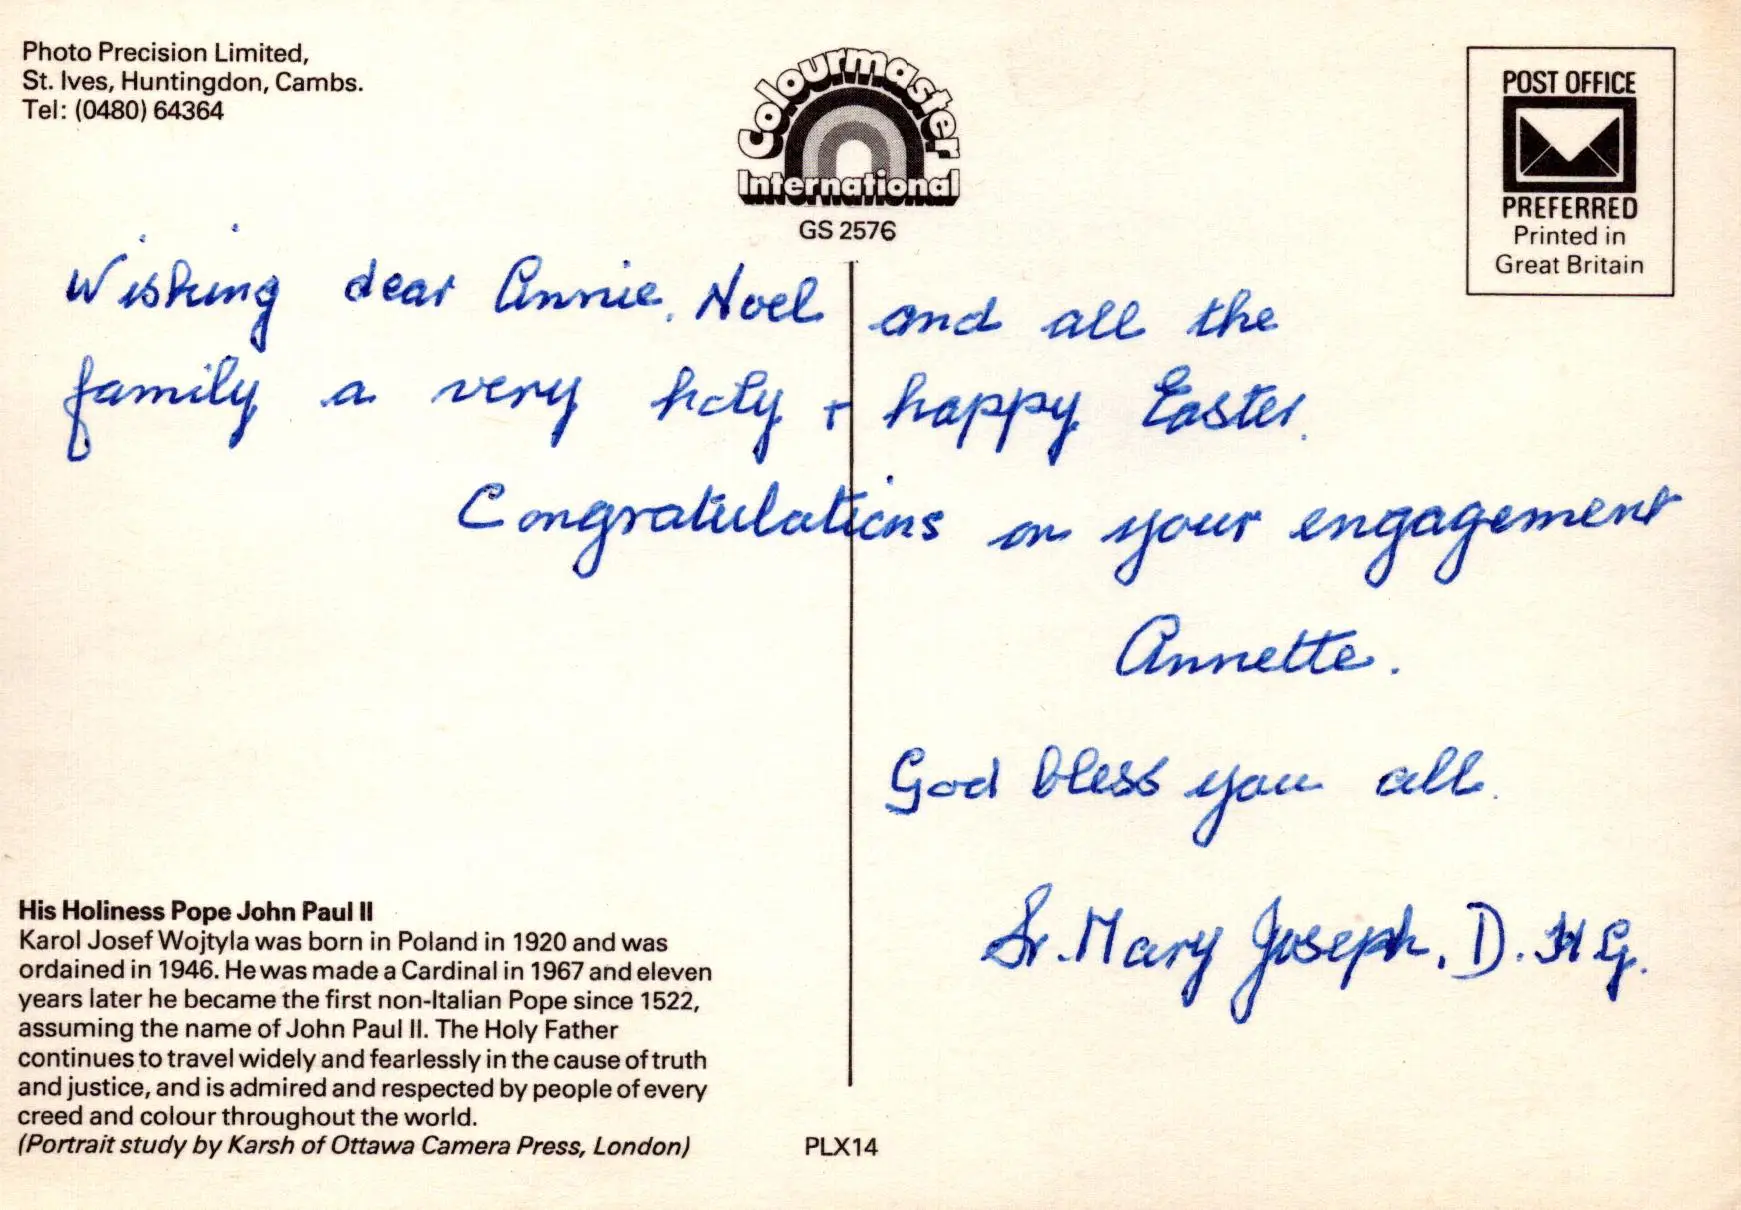 Photo Precision Limited,
St. Ives, Huntingdon, Cambs.
Tel: (0480) 64364
Colourmaster
International
GS 2576
POST OFFICE
PREFERRED
Printed in
Great Britain
Wishing dear Annie, Noel and all the
family a very holy + happy Easter.
Congratulations on your engagement
Annette.
God bless you all.
Sr. Mary Joseph, D.H.G.
His Holiness Pope John Paul II
Karol Josef Wojtyla was born in Poland in 1920 and was
ordained in 1946. He was made a Cardinal in 1967 and eleven
years later he became the first non-Italian Pope since 1522,
assuming the name of John Paul II. The Holy Father
continues to travel widely and fearlessly in the cause of truth
and justice, and is admired and respected by people of every
creed and colour throughout the world.
(Portrait study by Karsh of Ottawa Camera Press, London)
PLX14